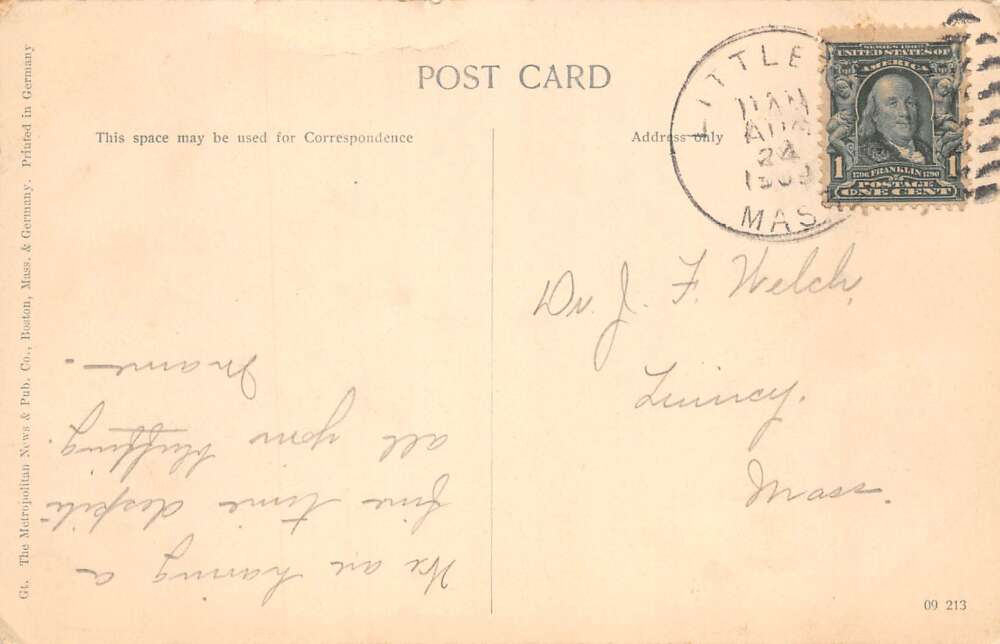 POST CARD
This space may be used for Correspondence
Address only
LITTLE
11 AM
AUG
24
1909
MASS
SERIES 1902
UNITED STATES OF
AMERICA
1 1706 FRANKLIN 1790 1
POSTAGE
ONE CENT
We are having a
fine time despite
all your bluffing.
Mame-
Dr. J. F. Welch,
Quincy.
Mass.
Gt. The Metropolitan News & Pub. Co., Boston, Mass. & Germany. Printed in Germany
09 213